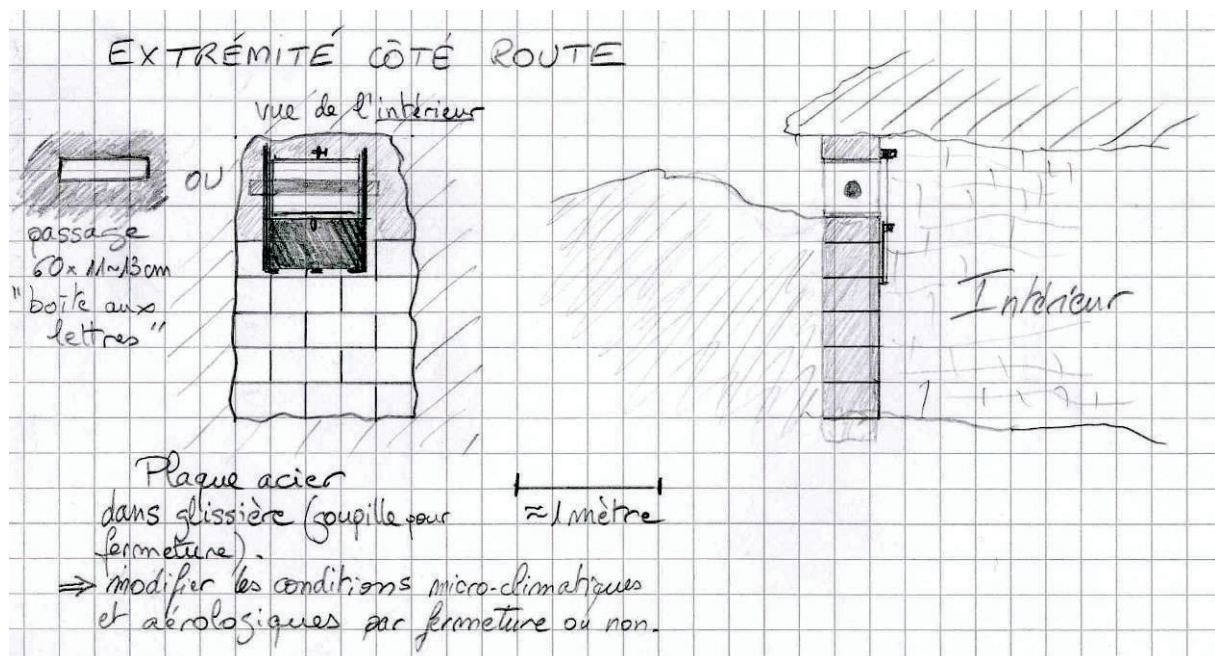 EXTRÉMITÉ CÔTÉ ROUTE
vue de l'intérieur
OU
passage
60 x 11~13cm
"boîte aux
lettres"
Intérieur
Plaque acier
dans glissière (goupille pour
fermeture).
≈1 mètre
⇒ modifier les conditions micro-climatiques
et aérologiques par fermeture ou non.